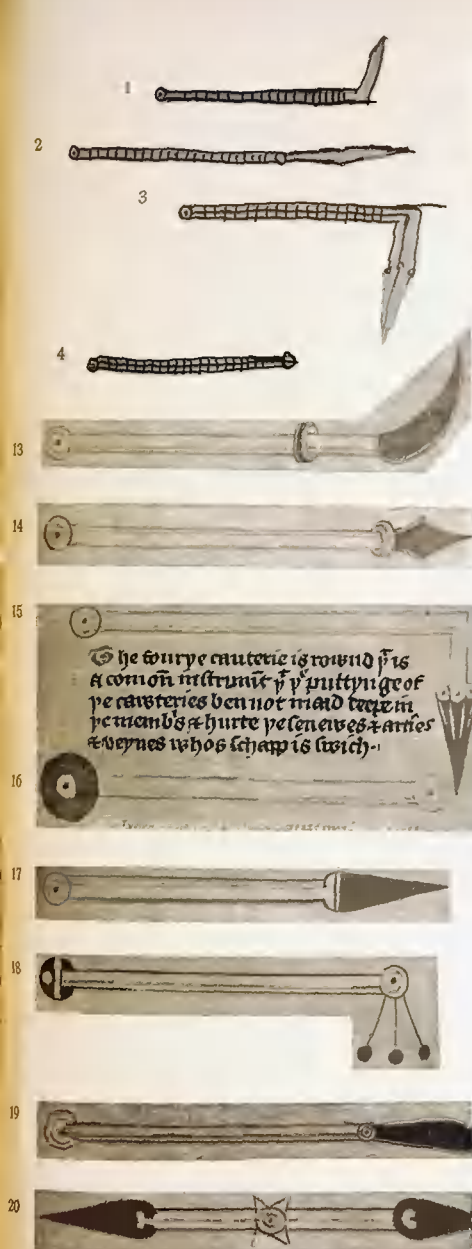 1
2
3
4
13
14
15
The fourþe cauterie is rownd þt is
a comoñ instrumẽt þt þe puttynge of
þe cawteries ben not maid deepe in
þe memb's & hurte þe senewes & arties
& veynes whos schapp is swich·
16
17
18
19
20